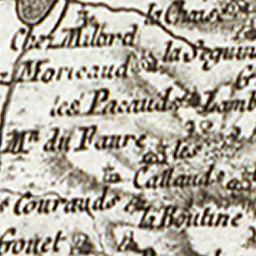 la Chaise
Chez Milord
la Seguin
Moriceaud
les Pacauds
Lamb
Mn du Faure
les
Callauds
s Courauds
la Boutine
Gouet